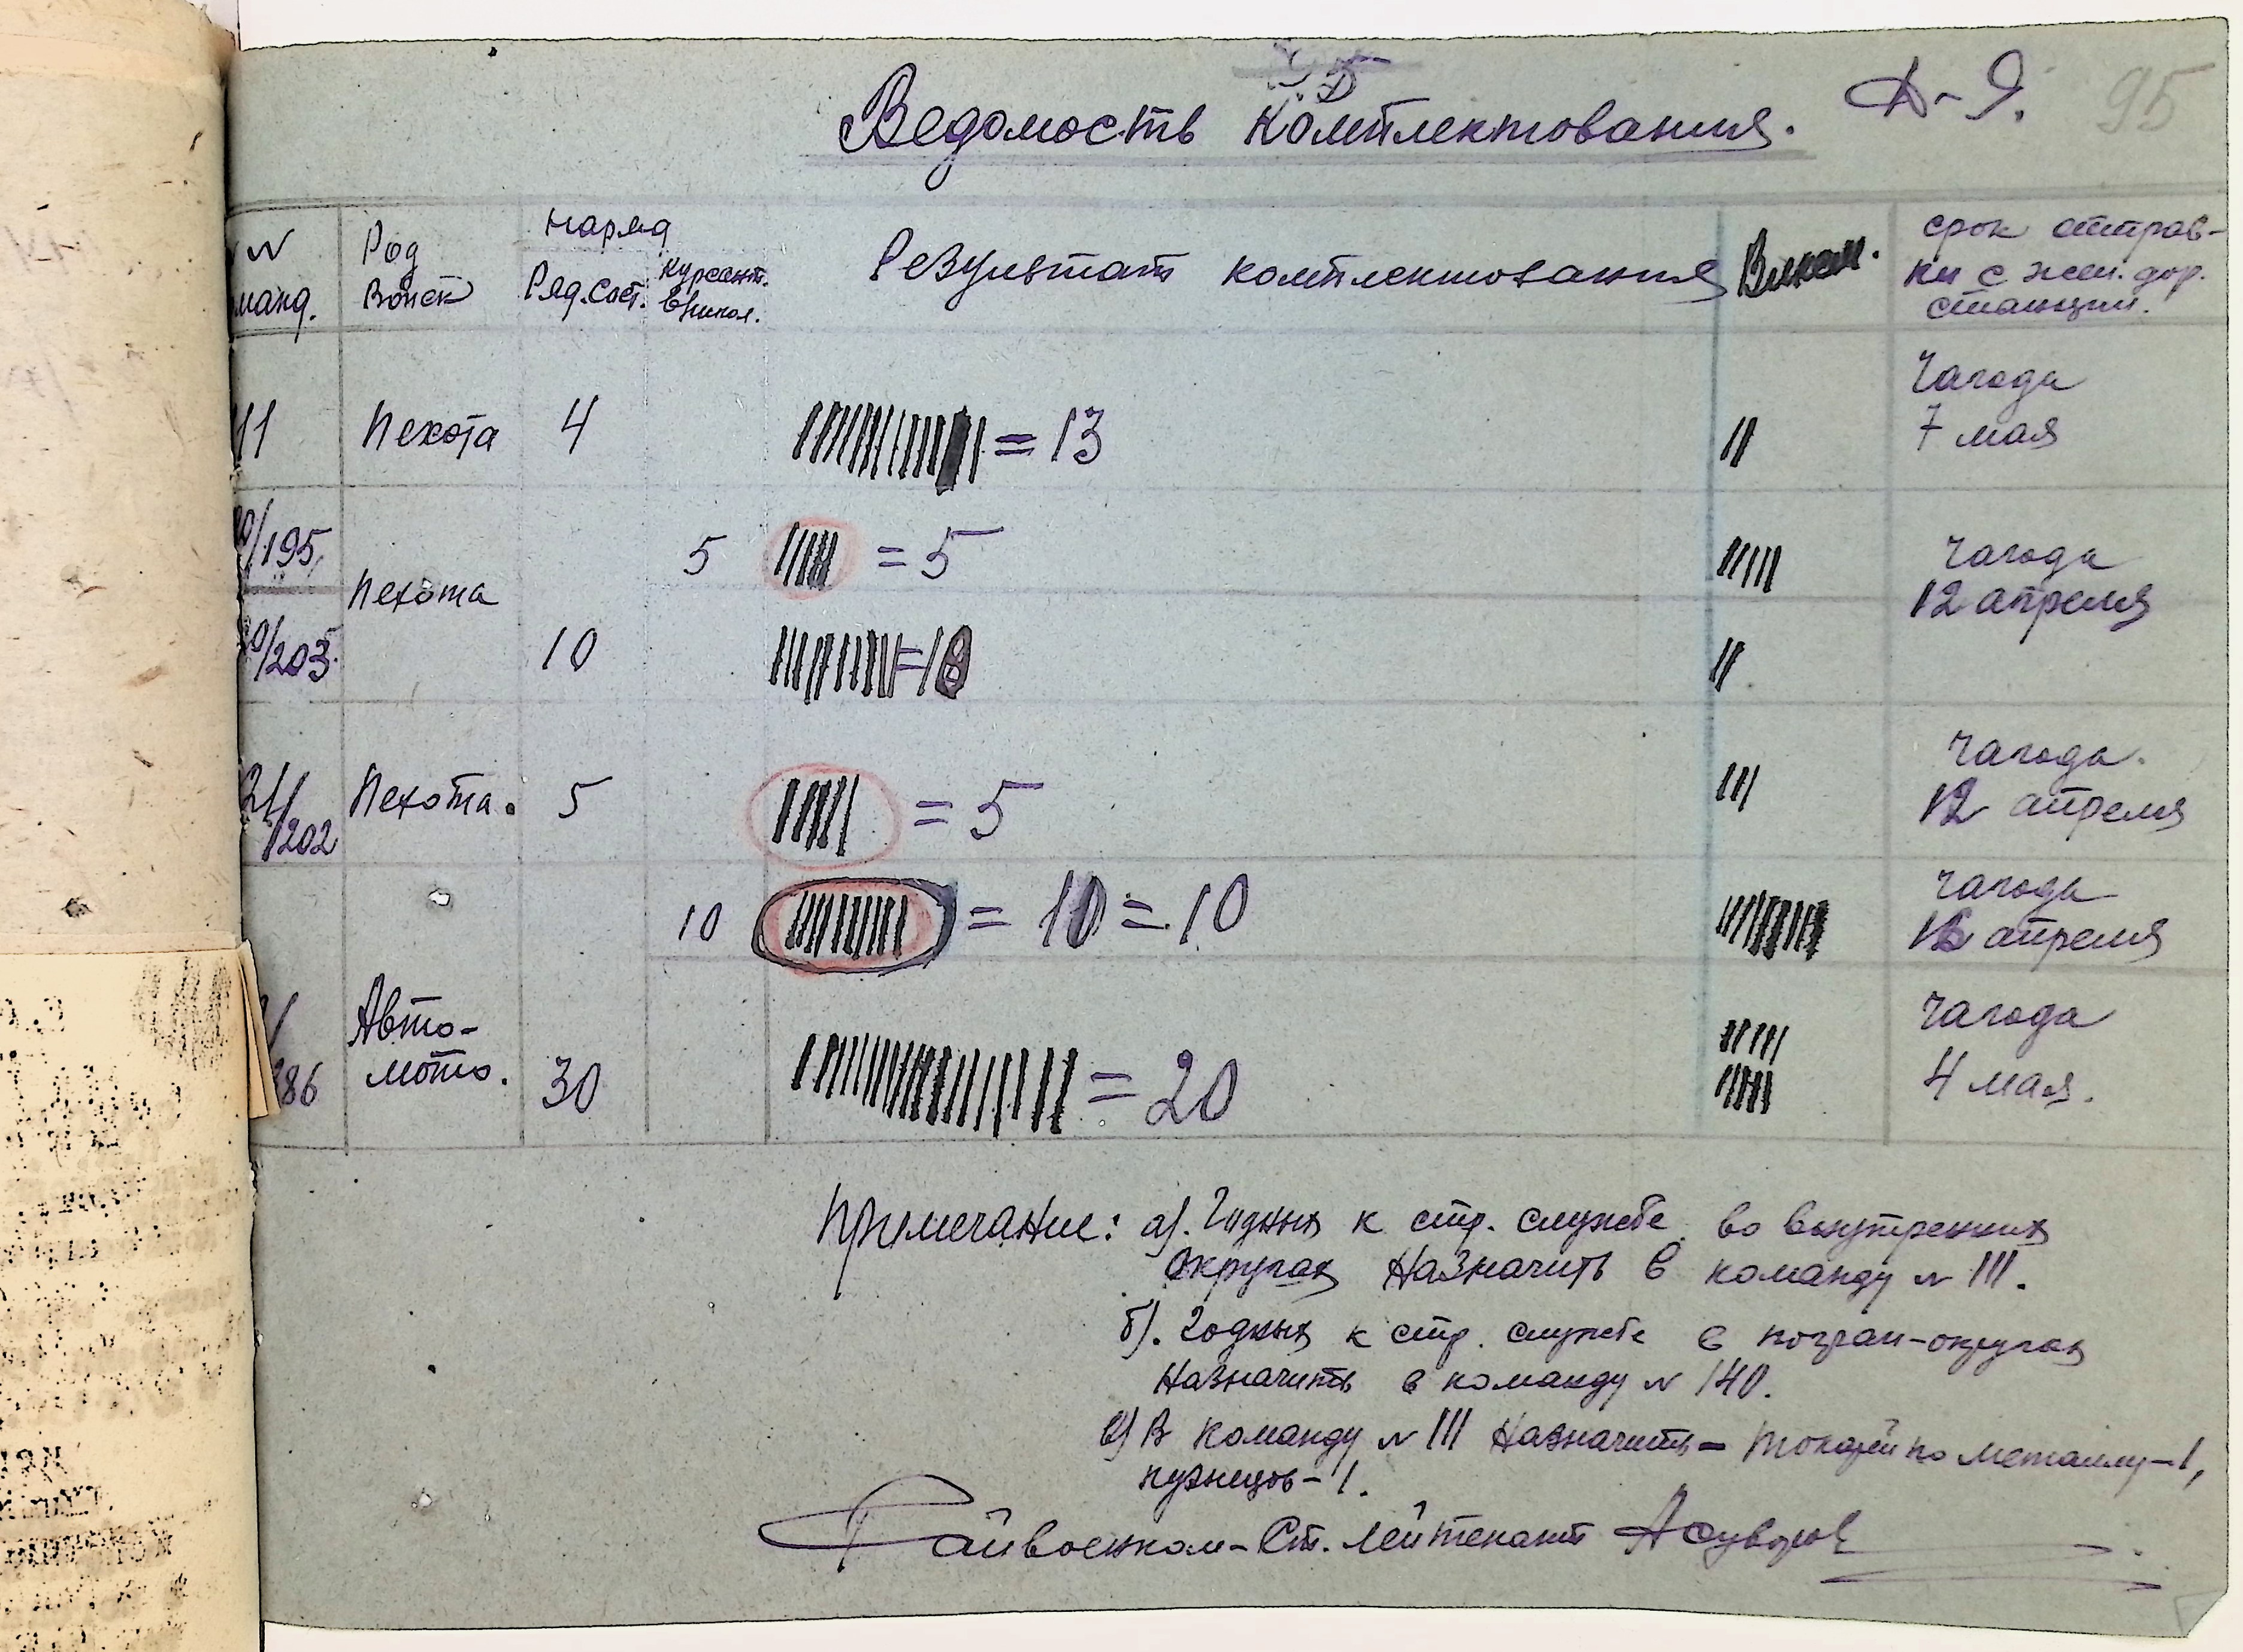 Ведомость Комплектования. Д-9. 95
N
манд.
Род
Войск
наряд
Ряд.Сост.
курсант.
в школ.
Результат комплектования
срок отправ-
ки с жел. дор.
станции.
11 Пехота 4 = 13 Чагода
7 мая
0/195 5 = 5 Чагода
Пехота 12 апреля
0/203 10
21/202 Пехота. 5 = 5 Чагода.
12 апреля
10 = 10 = 10 Чагода
16 апреля
Авто- Чагода
86 мото. 30 = 20 4 мая.
Примечание: а). Годных к стр. службе во внутренних
округах Назначить в команду N 111.
б). Годных к стр. службе в погран-округах
Назначить в команду N 140.
в) В команду N 111 Назначить - токарей по металлу-1,
кузнецов-1.
Райвоенком-Ст. лейтенант А Суворов